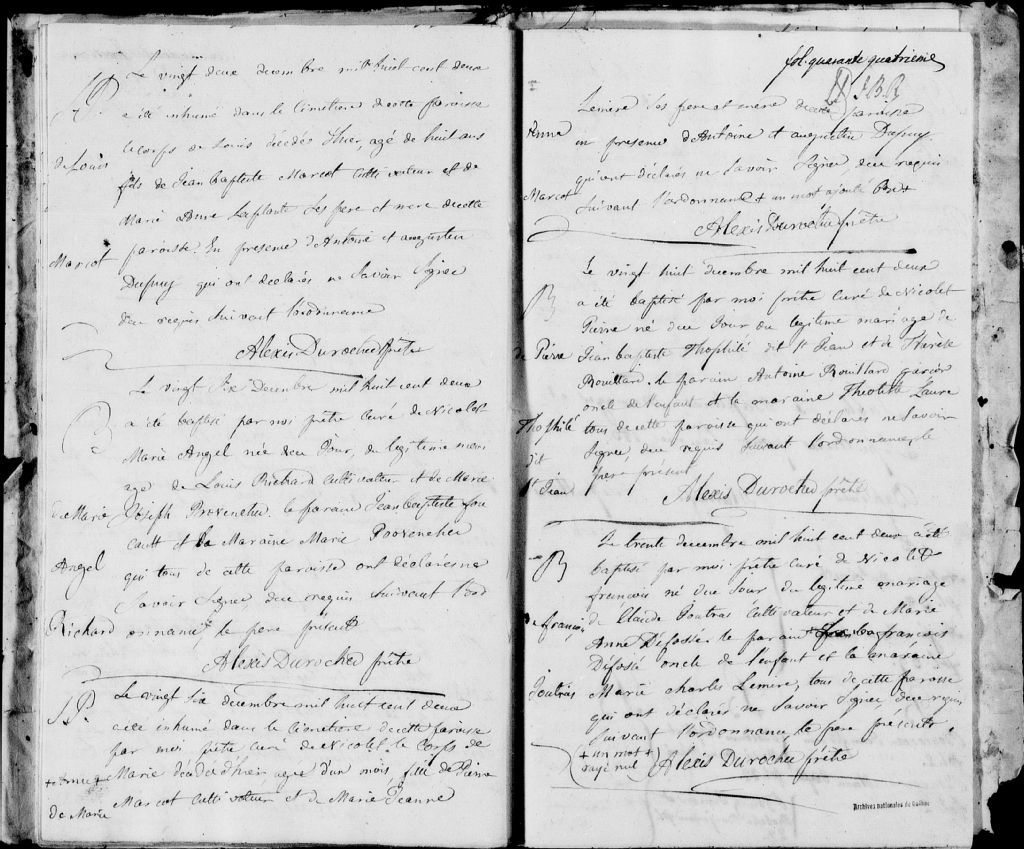 Le vingt deux decembre mil huit cent deux
S.
a été inhumé dans le Cimetiere de cette paroisse
le corps de Louis décédé hier, agé de huit ans
de Louis
fils de Jean baptiste Marcot cultivateur et de
Marie Anne Laplante Ses pere et mere de cette
Marcot
paroisse. En presence d'Antoine et augustin
Dupuy qui ont déclarés ne Savoir Signer
de ce requis Suivant l'ordonnance
Alexis Durocher prêtre
Le vingt Six Decembre mil huit cent deux
B
a été baptisé par nos prêtre curé de Nicolet
Marie Angel née du Jour, de legitime mari
age de Louis Richard cultivateur et de Marie
de Marie
Joseph Provencher. le parain Jean baptiste
et la Maraine Marie Provencher
Angel
qui tous de cette paroisse ont déclarés ne
Savoir Signer, de ce requis Suivant l'ord
Richard
onnance, le pere présent
Alexis Durocher prêtre
Le vingt Six decembre mil huit cent deux
S.
a été inhumé dans le Cimetiere de cette paroisse
par moi prêtre curé de Nicolet le Corps de
Marie décédé d'hier agée d'un mois, fille de Pierre
de Marie
Marcot cultivateur et de Marie Jeanne
fol. quarante quatrieme
J.B.B.
Lemire Ses pere et mere de cette paroisse
Anne
en presence d'Antoine et augustin Dupuy
qu'ont déclarés ne Savoir Signer, de ce requis
Marcot
Suivant l'ordonnance + un mot ajouté Bon +
Alexis Durocher prêtre
Le vingt huit decembre mil huit cent deux
B
a été baptisé par moi prêtre curé de Nicolet
Pierre né du Jour du legitime mariage de
de Pierre
Jean baptiste Thophilé dit St Jean et de Thérèse
Rouillard. le parain Antoine Rouillard garçon
oncle de l'enfant et la maraine Theoliste Laure
Thophilé
tous de cette paroisse qui ont déclarés ne Savoir
dit
Signer, de ce requis Suivant l'ordonnance, le
pere présent
St Jean
Alexis Durocher prêtre
Le trente decembre mil huit cent deux a été
B
baptisé par moi prêtre curé de Nicolet
françois né du Jour du legitime mariage
de françois
de Claude Joutras Cultivateur et de Marie
Anne Défossés le parain françois
Défossé oncle de l'enfant et la maraine
Joutras
Marie charles Lemire, tous de cette paroisse
qui ont déclarés ne Savoir Signer de ce requis
Suivant l'ordonnance, le pere présent
+ un mot +
rayé nul
Alexis Durocher prêtre
Archives nationales du Québec